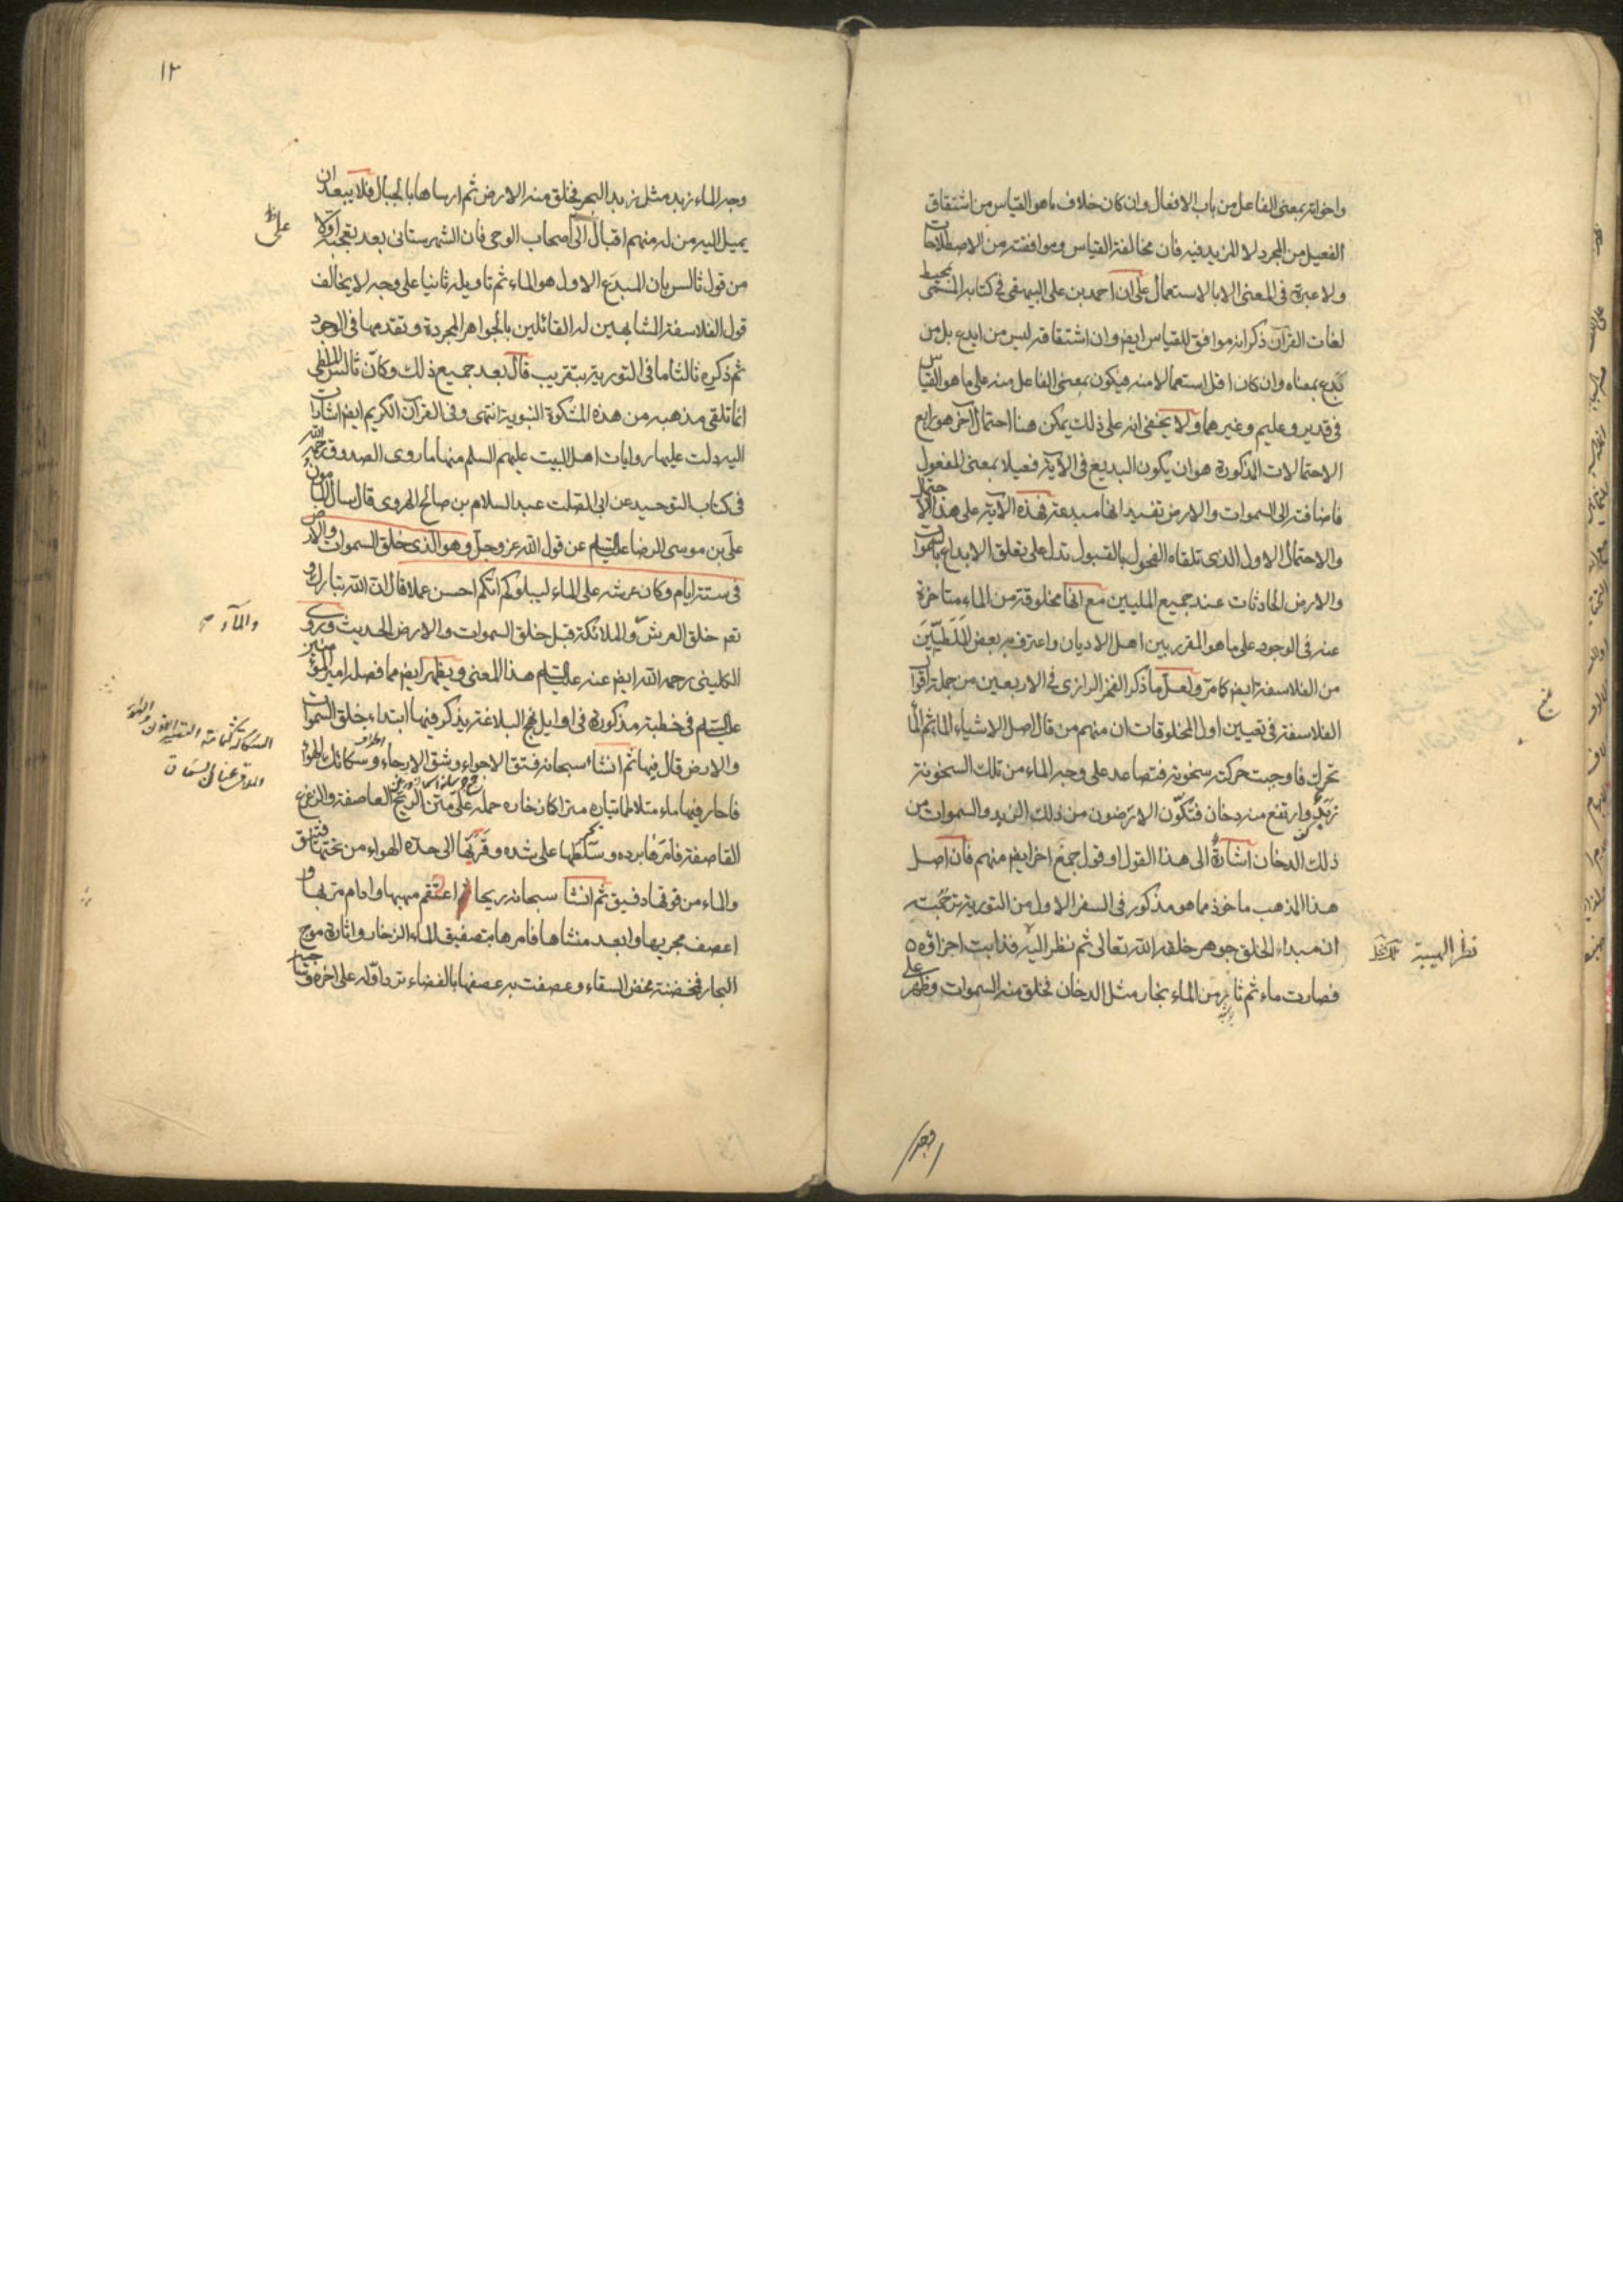 واخواته بمعنى الفاعل من باب الافعال وان كان خلاف ما هو القياس من اشتقاق
الفعيل من المجرد لا المزيد فيه فان مخالفة القياس وموافقته من الاصطلاحات
ولا عبرة فى المعنى الا بالاستعمال على ان احمد بن على البيهقى فى كتابه المسمى بمحيط
لغات القرآن ذكر انه موافق للقياس ايضا وان اشتقاقه ليس من ابدع بل من
بدع بمعناه وان كان اقل استعمالا منه فيكون بمعنى الفاعل منه على ما هو القياس
فى قدير وعليم وغيرهما ولا يخفى انه على ذلك يمكن هنا احتمال آخر هو رابع
الاحتمالات المذكورة هو ان يكون البديع فى الآية فعيلا بمعنى المفعول
فاضافته الى السموات والارض تفيد انها مبدعة فهذه الآية على هذا الاحتمال
والاحتمال الاول الذى تلقاه الفحول بالقبول تدل على تعلق الابداع بالسموات
والارض الحادثات عند جميع المليين مع انها مخلوقة من الماء متاخرة
عنه فى الوجود على ما هو المقرر بين اهل الاديان واعترف به بعض الملطيين
من الفلاسفة ايضا كما مر ولعل ما ذكر الفخر الرازى فى الاربعين من جملة اقوال
الفلاسفة فى تعيين اول المخلوقات ان منهم من قال اصل الاشياء الماء ثم لما
تحرك فاوجبت حركته سخونة فتصاعد على وجه الماء من تلك السخونة
زبد وارتفع منه دخان فتكون الارضون من ذلك الزبد والسموات من
ذلك الدخان اشارة الى هذا القول او قول جمع اخر ايضا منهم فان اصل
هذا المذهب ماخوذ مما هو مذكور فى السفر الاول من التورية
ان مبداء الخلق جوهر خلقه الله تعالى ثم نظر اليه فذابت اجزاؤه
نظر الهيبة
فصارت ماء ثم ثار من الماء بخار مثل الدخان فخلق منه السموات وظهر على
وجه
١٢
وجه الماء زبد مثل زبد البحر فخلق منه الارض ثم ارساها بالجبال فلا يبعد ان
يميل اليه من له منهم اقبال الى اصحاب الوحى فان الشهرستانى بعد تعجبه اولا
على
من قول ثالس بان المبدع الاول هو الماء ثم تاويله ثانيا على وجه لا يخالف
قول الفلاسفة المشابهين له القائلين بالجواهر المجردة وتقدمها فى الوجود
ثم ذكره ثالثا ما فى التورية بتقريب قال بعد جميع ذلك وكان ثالس الملطى
انما تلقى مذهبه من هذه المشكوة النبوية انتهى وفى القرآن الكريم ايضا اشارات
اليه دلت عليها روايات اهل البيت عليهم السلم منها ما روى الصدوق رحمه الله
فى كتاب التوحيد عن ابى الصلت عبد السلام بن صالح الهروى قال سال المامون
على بن موسى الرضا عليه السلم عن قول الله عز وجل وهو الذى خلق السموات والارض
فى ستة ايام وكان عرشه على الماء ليبلوكم ايكم احسن عملا قال ان الله تبارك و
تعم خلق العرش والملائكة قبل خلق السموات والارض الحديث وروى
والماء
الكلينى رحمه الله ايضا عنه عليه السلم هذا المعنى ويظهر ايضا مما فصله امير المؤمنين
عليه السلم فى خطبة مذكورة فى اوايل نهج البلاغة يذكر فيها ابتداء خلق السموات
والارض قال فيها ثم انشاء سبحانه فتق الاجواء وشق الارجاء وسكائك الهواء
فاجار فيها ماء متلاطما تياره متراكما زخاره حمله على متن الريح العاصفة والزعزع
القاصفة فامرها برده وسلطها على شده وقرنها الى حده الهواء من تحتها فتيق
والماء من فوقها دفيق ثم انشا سبحانه ريحا اعتقم مهبها وادام مربها و
اعصف مجريها وابعد منشاها فامرها بتصفيق الماء الزخار واثارة موج
البحار فمخضته مخض السقاء وعصفت به عصفها بالفضاء ترد اوله على اخره